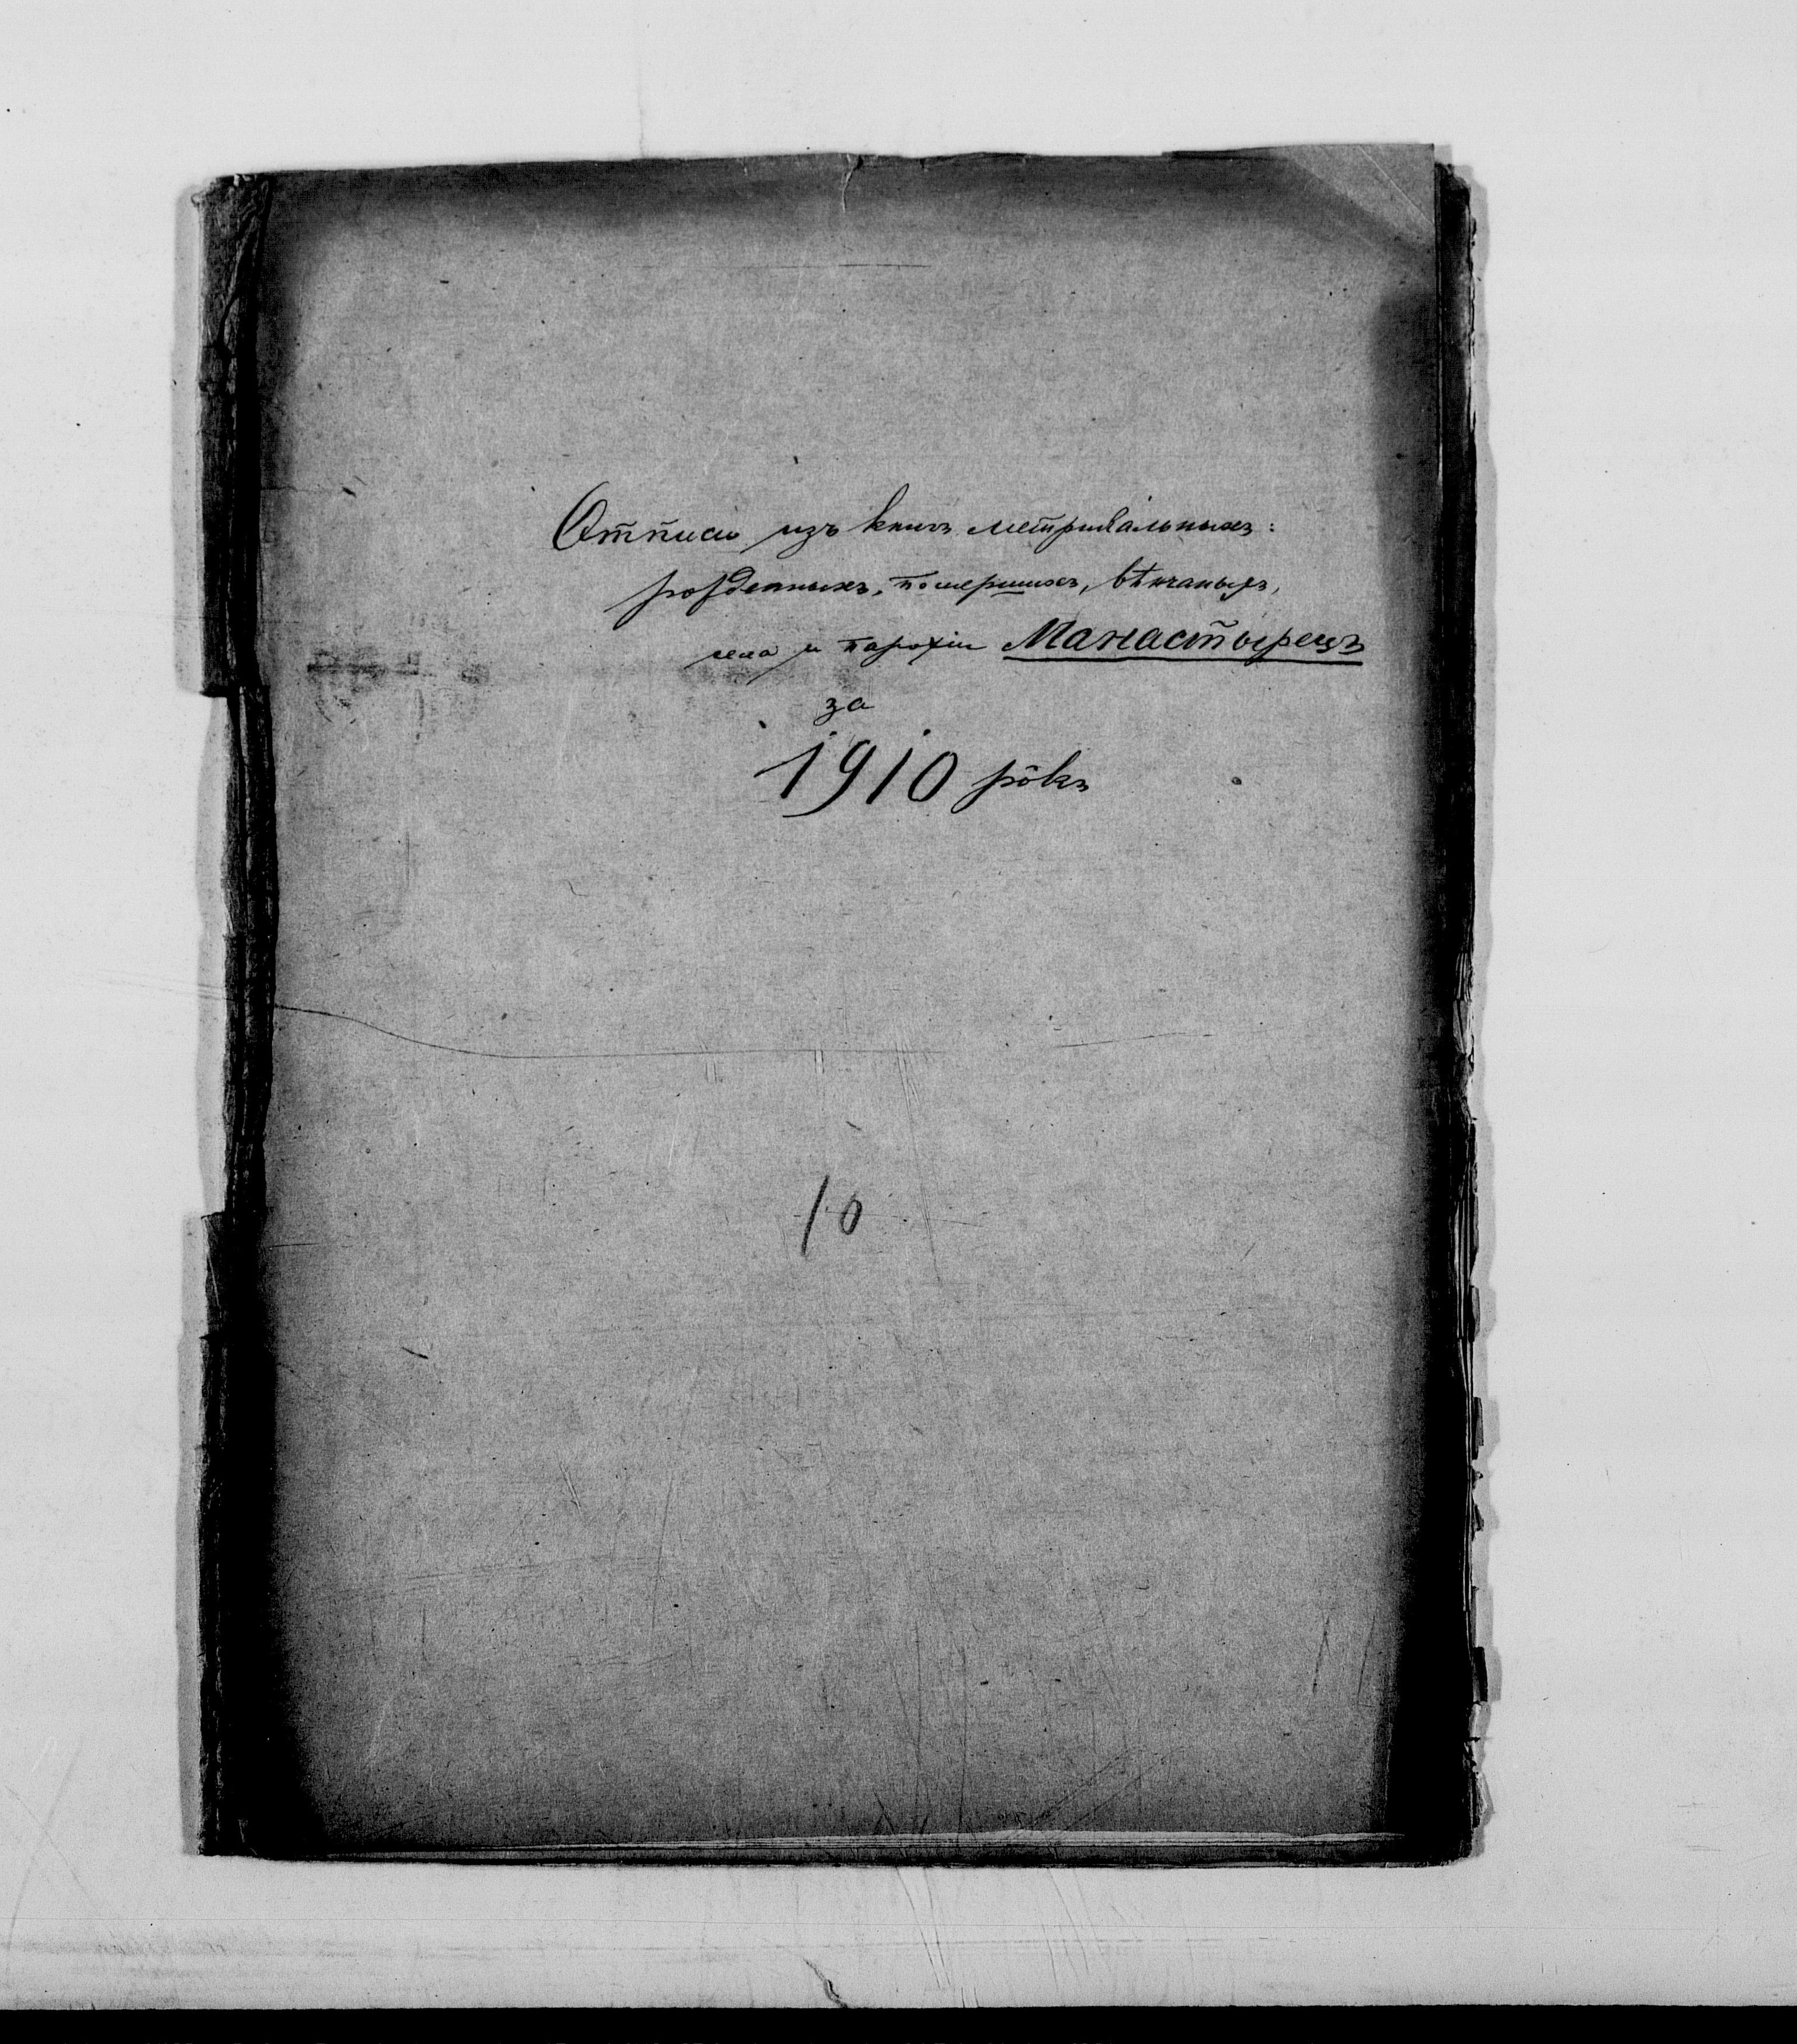 Отписи изъ книгъ метрикальныхъ:
рожденныхъ, померших, вѣнчаныхъ,
села и парохіи Манастырецъ
за
1910 рôкъ
10